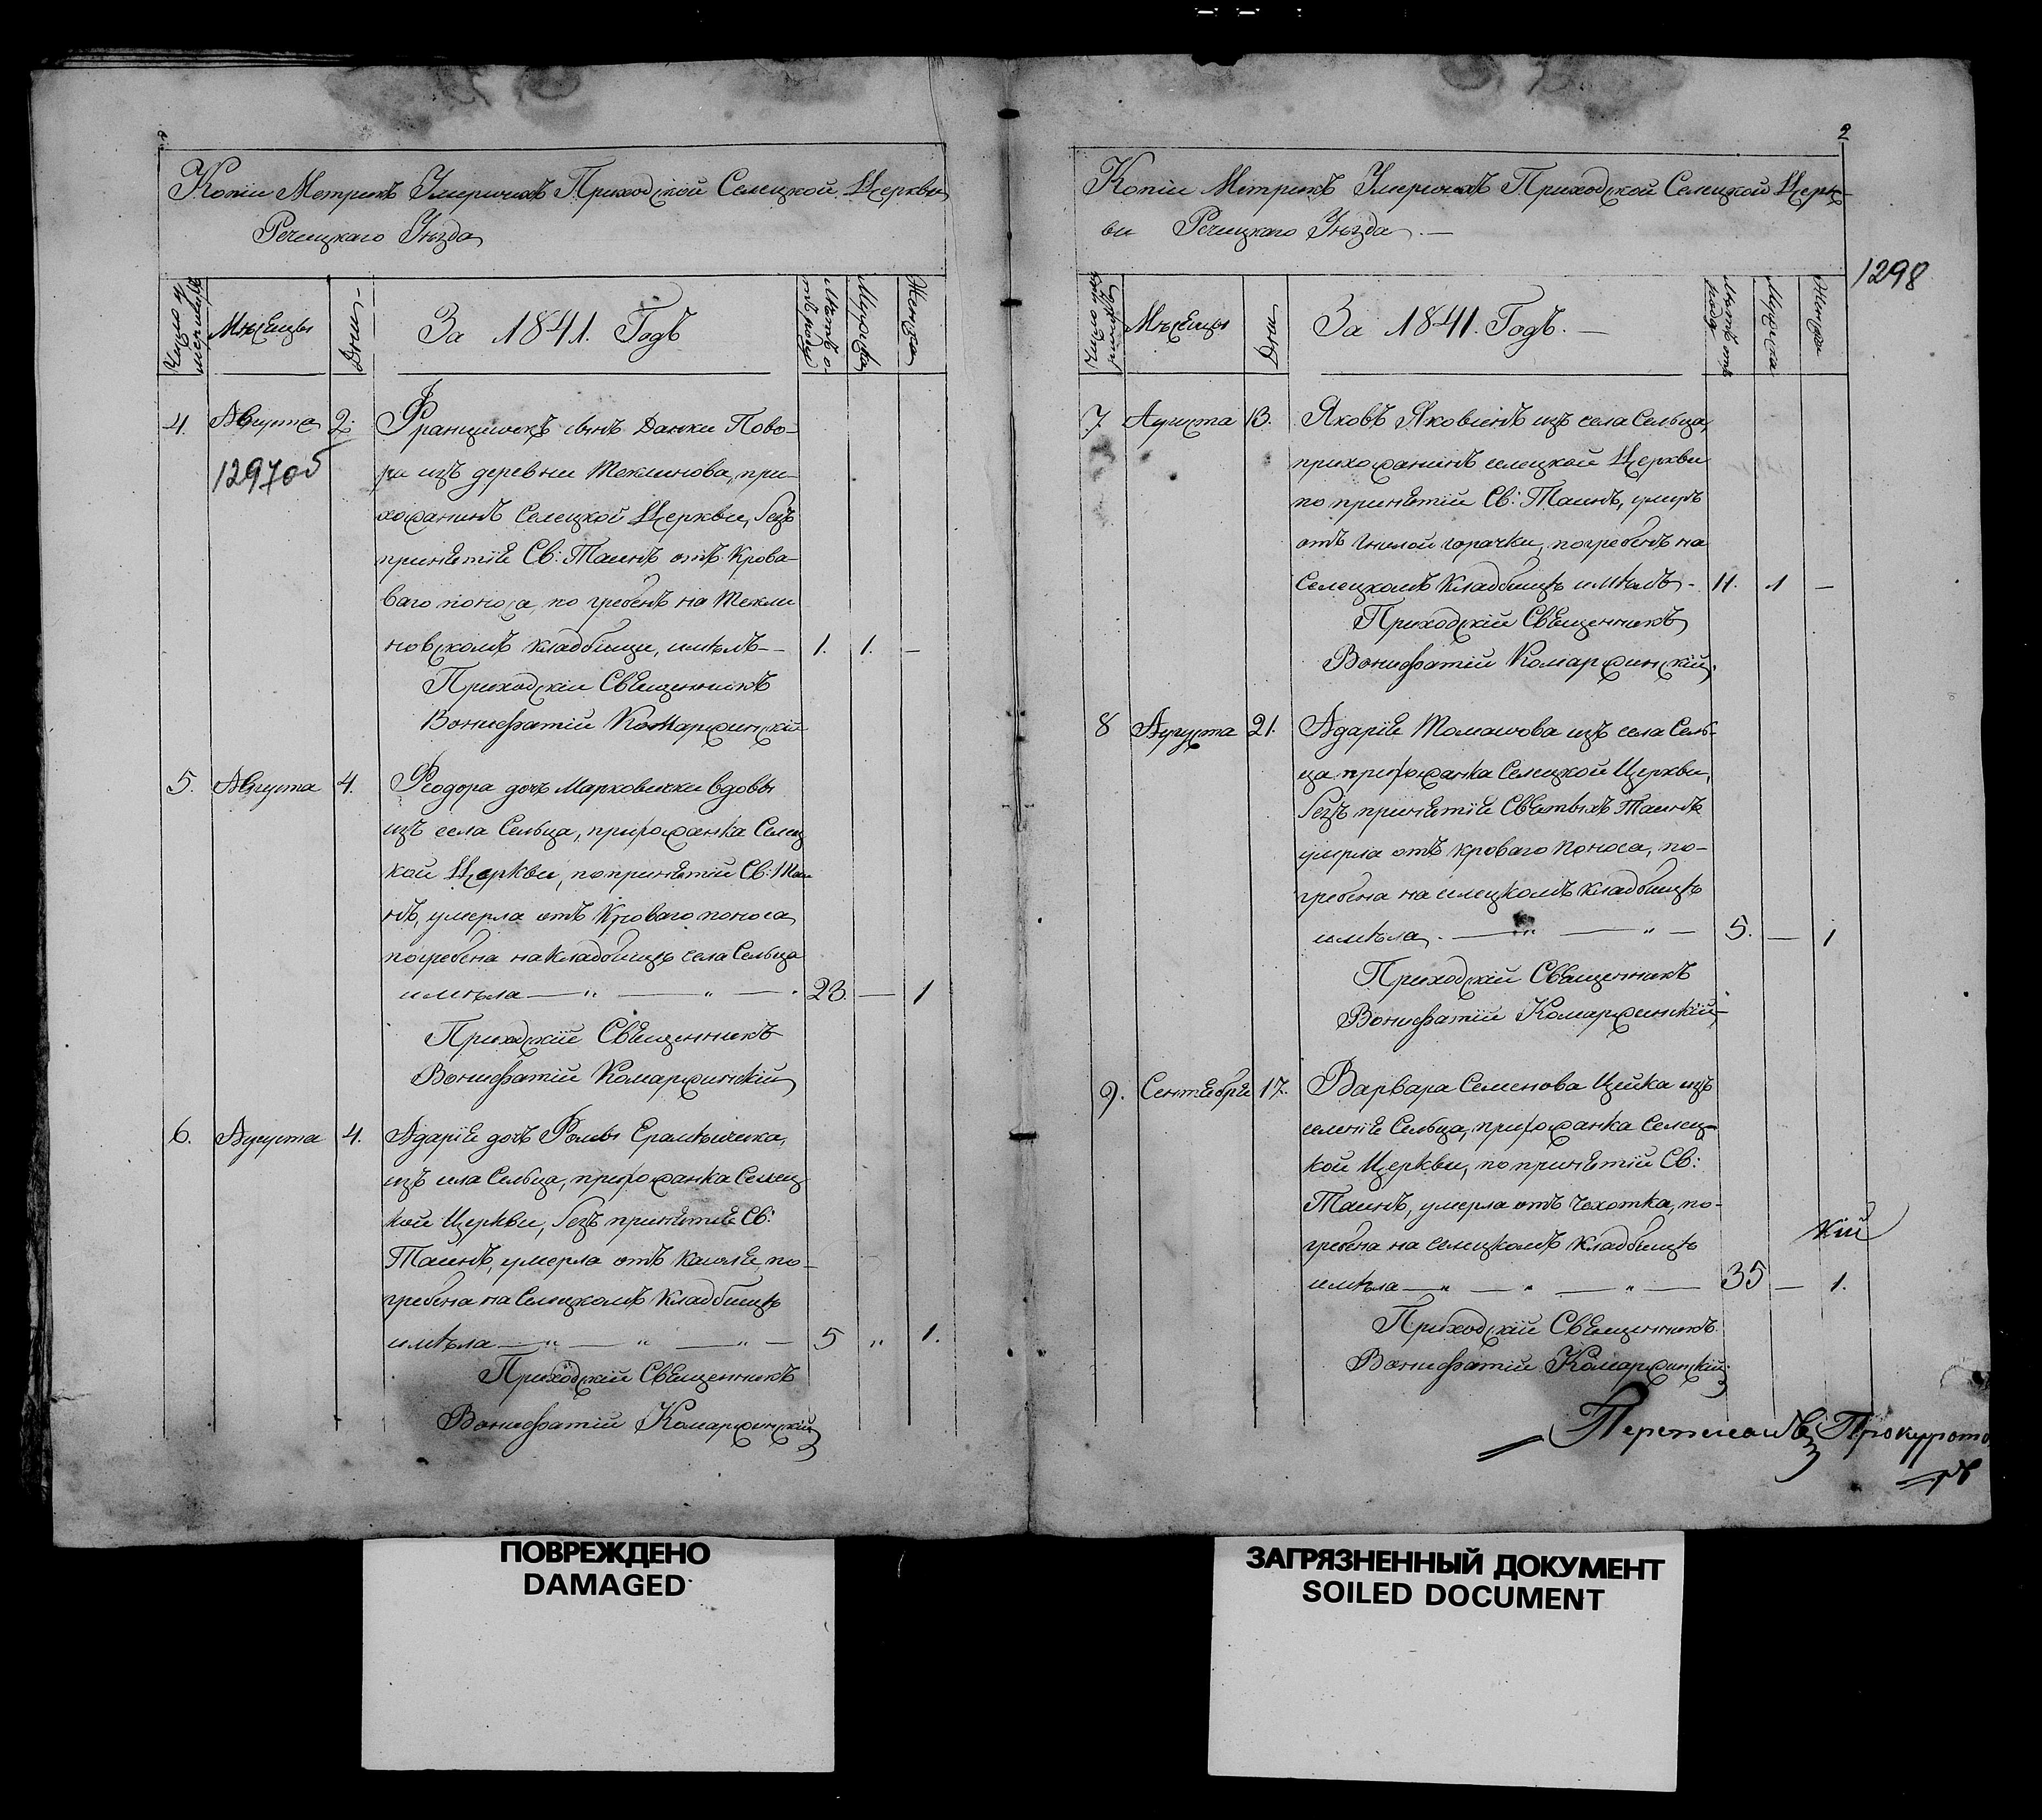 Копіи Метрикъ Умершихъ Приходской Селецкой Церкви
Речицкаго Уѣзда
Число у
мершихъ
Мѣсяцы
Дни
За 1841. Годъ
Лѣтъ о-
тъ роду
Мужеска
Женска
4. Августа 2.
1297об
Францишекъ сынъ Данки Пово-
ра изъ деревни Теклинова, при-
хожанинъ Селецкой Церкви, безъ
принятія Св: Таинъ отъ Крова-
ваго поноса, погребенъ на Текли
новскомъ кладбищи, имѣлъ — 1. 1. —
Приходскій Священникъ
Вонифатій Комаржинскій
5. Августа 4. Феодора дочь Марковички вдовы
изъ села Сельца, прихожанка Селец
кой Церкви, по принятіи Св: Таи
нъ, умерла отъ Кроваго поноса
погребена на кладбищѣ села Сельца
имѣла — „ — „ — 23. — 1
Приходскій Священникъ
Вонифатій Комаржинскій
6. Августа 4. Адарія дочь Ромы
изъ села Сельца, прихожанка Селец
кой Церкви, безъ принятія Св:
Таинъ, умерла отъ кашля, по-
гребена на Селецкомъ Кладбищѣ
имѣла — „ — „ — „ — 5 „ 1.
Приходскій Священникъ
Вонифатій Комаржинскій
2
Копіи Метрикъ Умершихъ Приходской Селецкой Церк-
ви Речицкаго Уѣзда. —
1298
Мѣсяцы
Дни
За 1841. Годъ. —
Лѣтъ отъ
роду
Мужеска
Женска
7. Августа 13. Яковъ Яковлевъ изъ села Сельца,
прихожанинъ селецкой Церкви
по принятіи Св: Таинъ, умеръ
отъ гнилой горячки, погребенъ на
Селецкомъ Кладбищѣ имѣлъ - 11. 1 —
Приходскій Священникъ
Вонифатій Комаржинскій
8 Августа 21. Адарія Томашова изъ села Сель-
ца прихожанка Селецкой Церкви,
безъ принятія Святыхъ Таинъ
умерла отъ кроваго поноса, по-
гребена на селецкомъ кладбищѣ
имѣла. — „ — „ — 5. — 1
Приходскій Священникъ
Вонифатій Комаржинскій
9. Сентября 17. Варвара Семенова Цейка изъ
селенія Сельца, прихожанка Селец-
кой Церкви, по принятіи Св:
Таинъ, умерла отъ чахотка, по-
гребена на селецкомъ кладбищѣ
кій
имѣла — „ — „ — „ — 35 — 1.
Приходскій Священникъ
Вонифатій Комаржинскій
ПОВРЕЖДЕНО
DAMAGED
ЗАГРЯЗНЕННЫЙ ДОКУМЕНТ
SOILED DOCUMENT